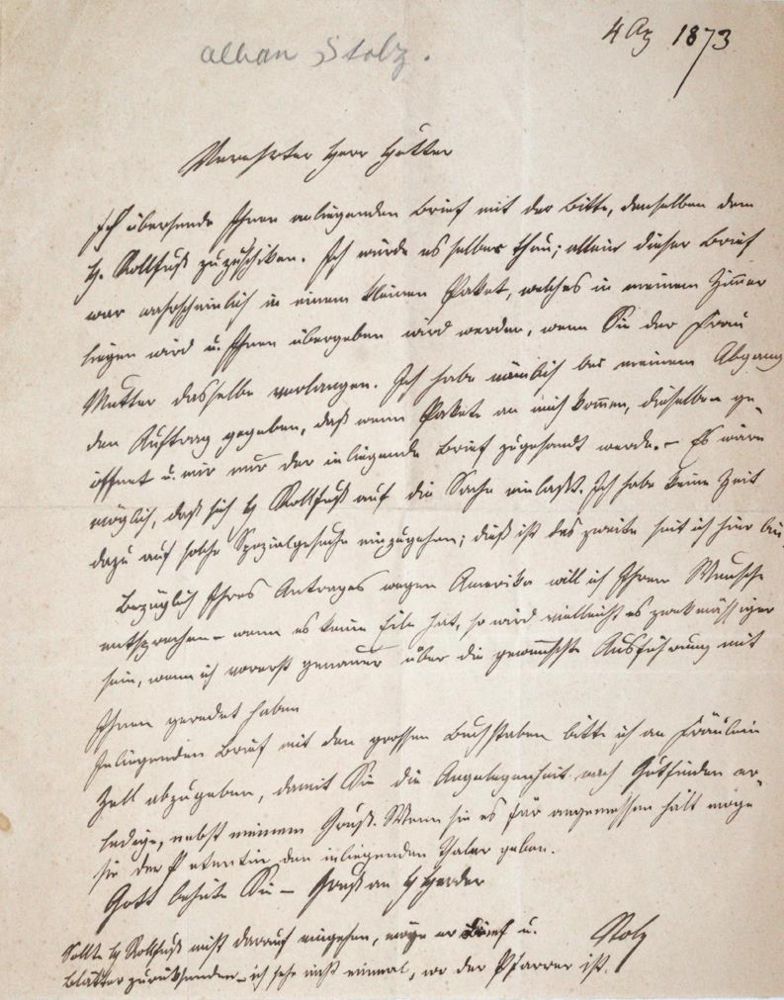 alban Stolz.
4 Ag 1873
Verehrter Herr Hutter
Ich übersende Ihnen anliegenden Brief mit der Bitte, denselben dem
H. Rollfuß zuzuschiken. Ich würde es selber thun; allein dieser Brief
war wahrscheinlich in einem kleinen Paket, welches in meinem Zimer
liegen wird u. Ihnen übergeben wird werden, wenn Sie der Frau
Mutter dasselbe verlangen. Ich habe nämlich bei meinem Abgang
den Auftrag gegeben, daß wenn Pakete an mich komen, dieselben ge-
öffnet u. mir nur der inliegende Brief zugesandt werde. – Es wäre
möglich, daß sich H Rollfuß auf die Sache einlaßt. Ich habe keine Zeit
dazu auf solche Spezialgesuche einzugehen; dieß ist das zweite seit ich hier bin
Bezüglich Ihres Antrages wegen Amerika will ich Ihrem Wunsche
entsprechen – wenn es keine Eile hat, so wird vielleicht es zwekmässiger
sein, wenn ich vorerst genauer über die gewünschte Ausführung mit
Ihnen geredet haben
Inliegenden Brief mit den grossen Buchstaben bitte ich an Fräulein
Zell abzugeben, damit Sie die Angelegenheit nach Gutfinden er-
ledige, nebst meinem Gruß. Wenn sie es für angemessen hält möge
sie der Petentin den inliegenden Thaler geben.
Gott behüte Sie – Gruß an H Herder
Stolz
Sollte H Rollfuß nicht darauf eingehen, möge er Brief u.
Blätter zurüksenden – ich sehe nicht einmal, wo der Pfarrer ist.